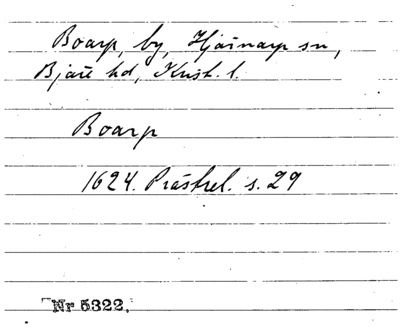 Boarp, by, Hjärnarp sn,
Bjäre hd, Krist. l.
Boarp
1624. Prästrel. s. 29
Nr 5322.